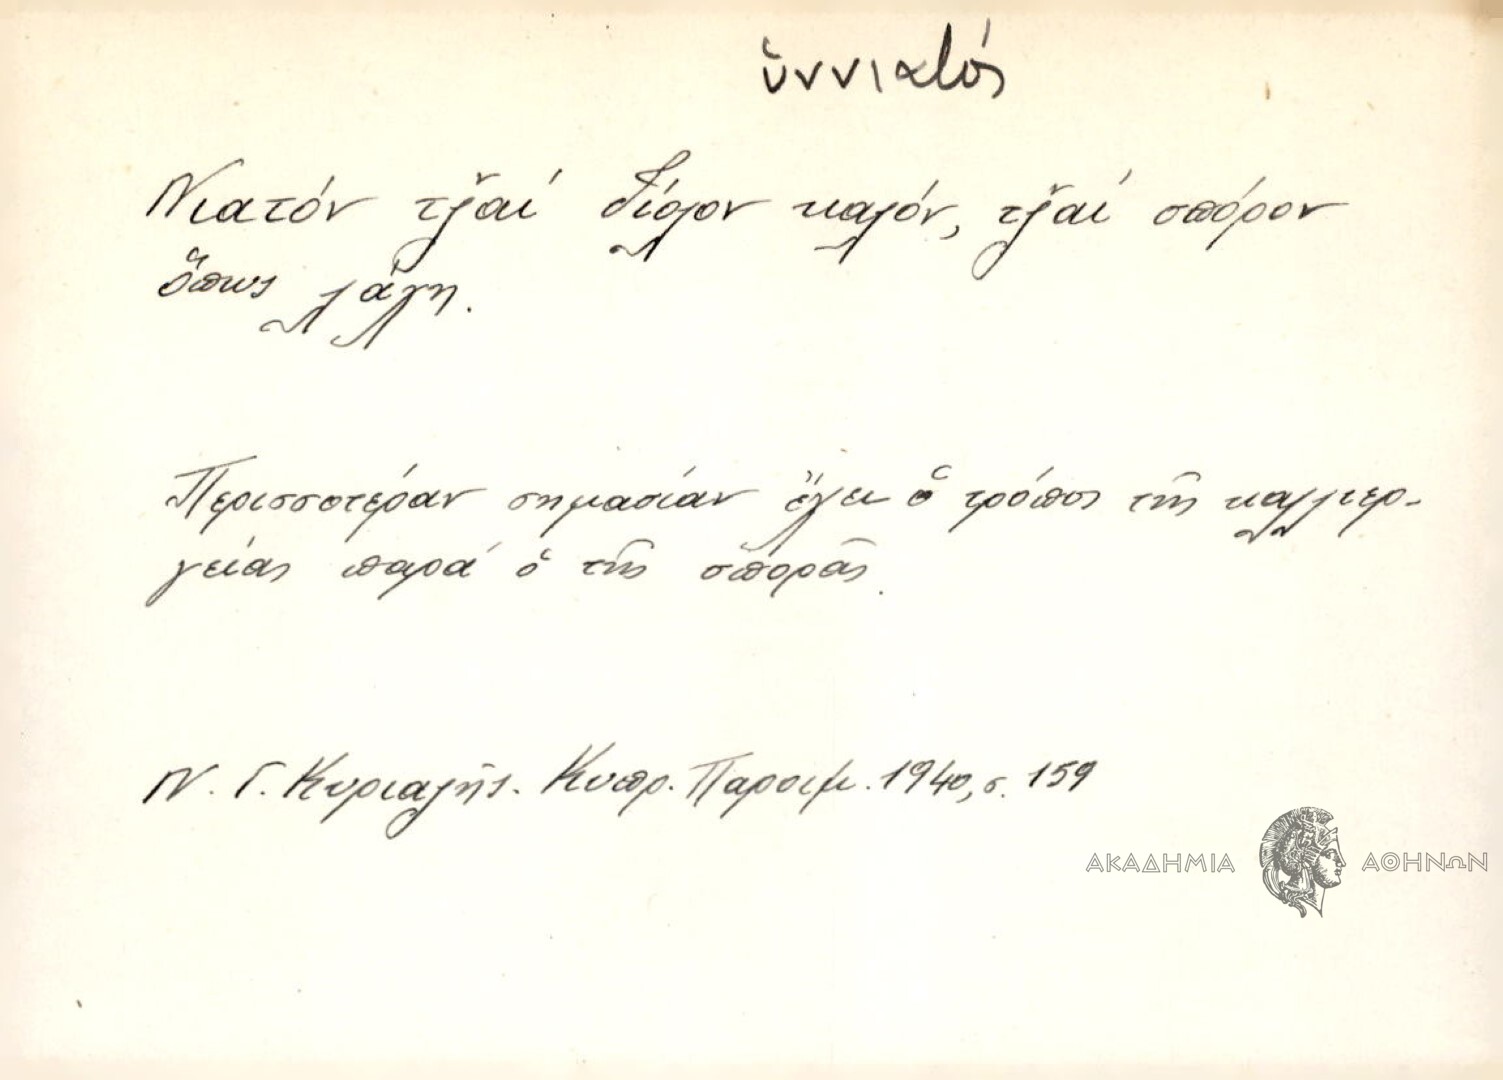 ὑννιατός
Νιατόν τζ̆αί δίολον καλόν, τζ̆αί σπόρον
ὅπως λάχη.
Περισσοτέραν σημασίαν ἔχει ὁ τρόπος τῆς καλλιερ-
γείας παρά ὁ τῆς σπορᾶς.
Ν. Γ. Κυριαζῆς. Κυπρ. Παροιμ. 1940, σ. 159
ΑΚΑΔΗΜΙΑ ΑΘΗΝΩΝ